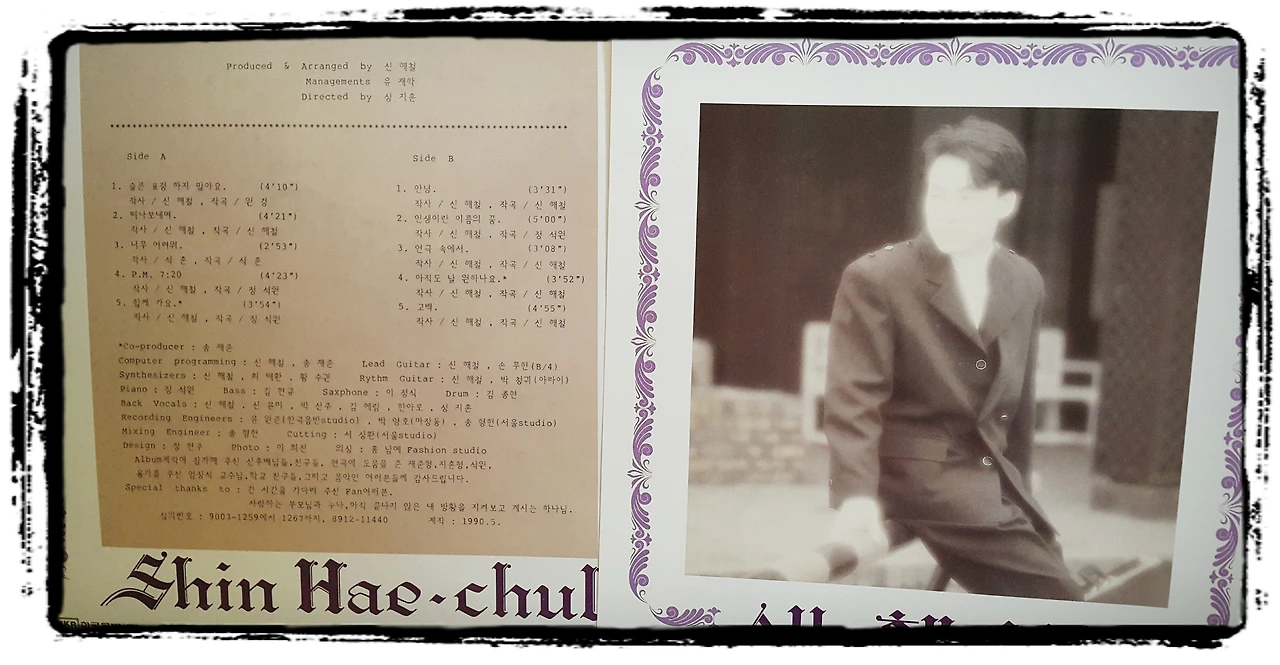 Produced & Arranged by 신 해철
Managements 유 재학
Directed by 심 지훈
Side A
1. 슬픈 표정 하지 말아요. (4'10")
작사 / 신 해철 , 작곡 / 원 경
2. 떠나보내며. (4'21")
작사 / 신 해철 , 작곡 / 신 해철
3. 너무 어려워. (2'53")
작사 / 석 훈 , 작곡 / 석 훈
4. P.M. 7:20 (4'23")
작사 / 신 해철 , 작곡 / 정 석원
5. 함께 가요.* (3'54")
작사 / 신 해철 , 작곡 / 정 석원
Side B
1. 안녕. (3'31")
작사 / 신 해철 , 작곡 / 신 해철
2. 인생이란 이름의 꿈. (5'00")
작사 / 신 해철 , 작곡 / 정 석원
3. 연극 속에서. (3'08")
작사 / 신 해철 , 작곡 / 신 해철
4. 아직도 날 원하나요.* (3'52")
작사 / 신 해철 , 작곡 / 신 해철
5. 고백. (4'55")
작사 / 신 해철 , 작곡 / 신 해철
*Co-producer : 송 재준
Computer programming : 신 해철 , 송 재준 Lead Guitar : 신 해철 , 손 무현(B/4)
Synthesizers : 신 해철 , 최 태완 , 황 수권 Rythm Guitar : 신 해철 , 박 청귀(아라이)
Piano : 정 석원 Bass : 김 현규 Saxphone : 이 정식 Drum : 김 종현
Back Vocals : 신 해철 , 신 윤미 , 박 선주 , 김 혜림 , 한아로 , 심 지훈
Recording Engineers : 윤 원권(한국음반studio) , 박 영호(마장동) , 송 형헌(서울studio)
Mixing Engineer : 송 형헌 Cutting : 시 상환(서울studio)
Design : 정 현주 Photo : 이 희진 의상 : 홍 남애 Fashion studio
Album제작에 참가해 주신 선후배님들,친구들, 편곡에 도움을 준 재준형,지훈형,석원,
용기를 주신 엄정식 교수님,학교 친구들,그리고 음악인 여러분들께 감사드립니다.
Special thanks to : 긴 시간을 기다려 주신 Fan여러분.
사랑하는 부모님과 누나,아직 끝나지 않은 내 방황을 지켜보고 계시는 하나님.
심의번호 : 9003-1259에서 1267까지, 8912-11440 제작 : 1990.5.
Shin Hae-chul